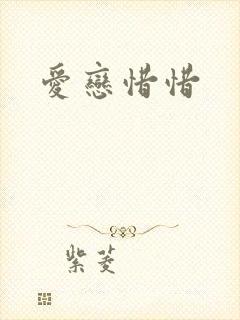 愛戀惜惜
紫菱